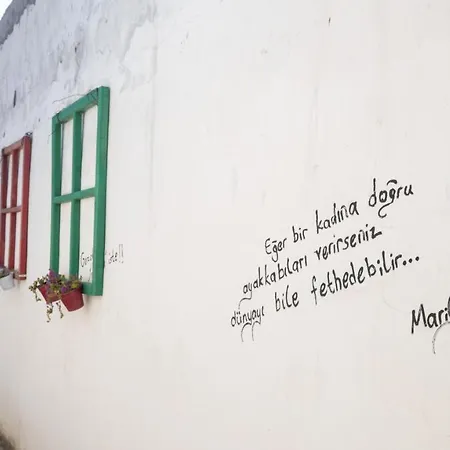 Eğer bir kadına doğru
ayakkabıları verirseniz
dünyayı bile fethedebilir...